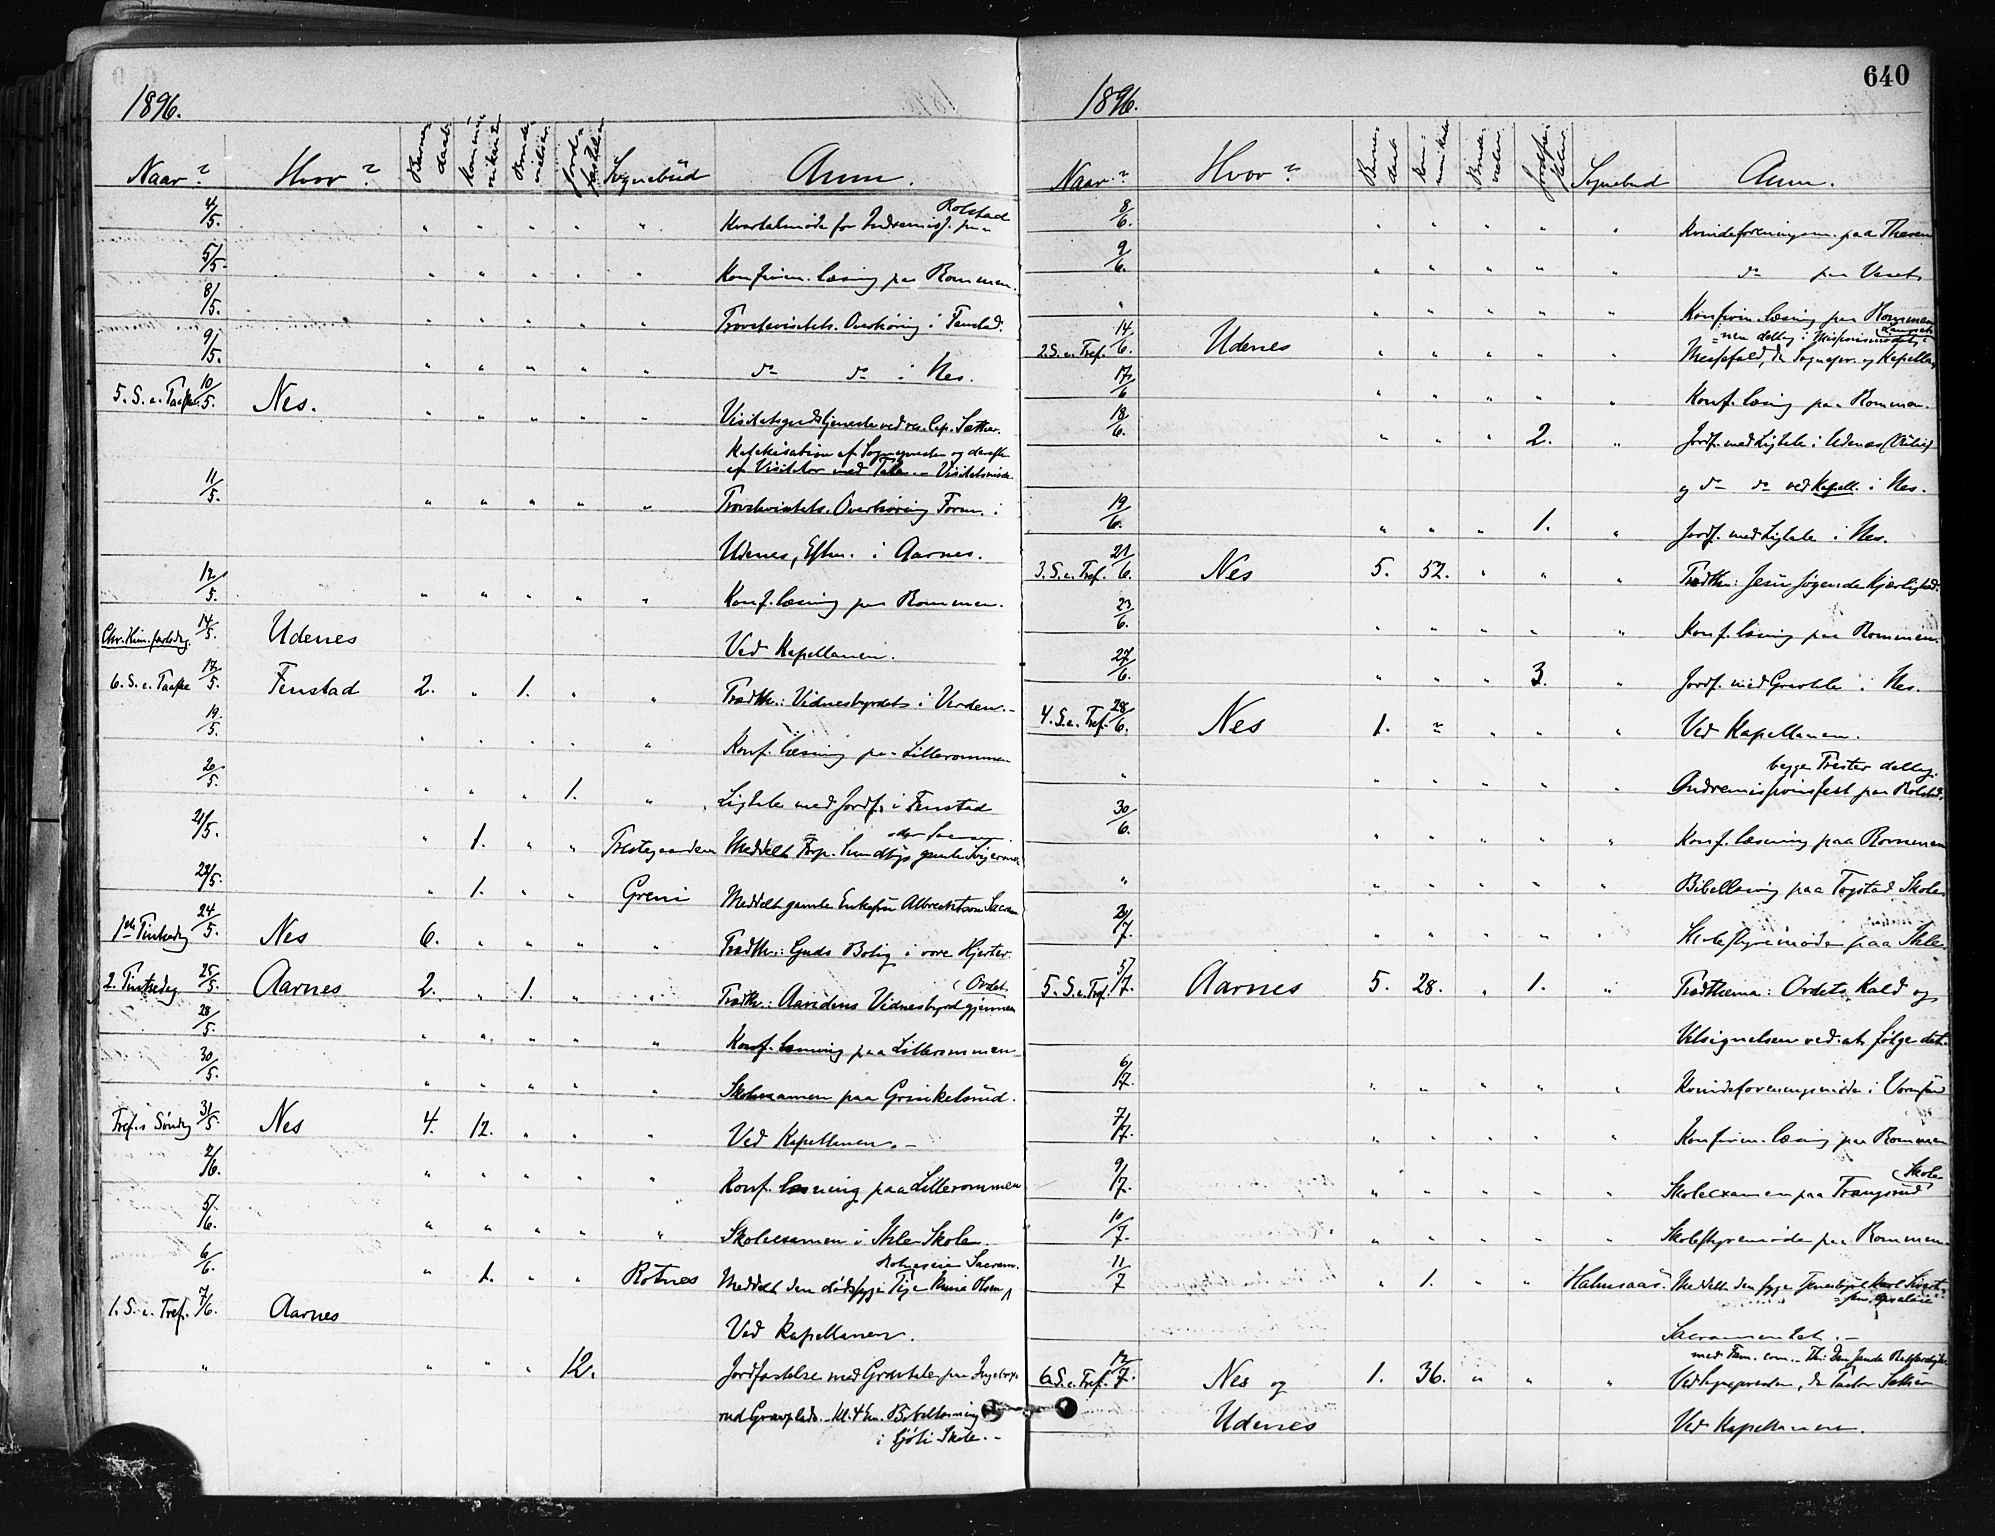 1896.
Naar? Hvor? Barnedaab. Kommunikanter Brudevielser Jordfæstelser Sognebud Anm.
4/5. " " " " " Kvartalmøde for Indremisj. paa Rolstad
5/5. " " " " " Konfirm. læsning paa Rommen.
8/5. " " " " " Provstevisitats. Overhøring i Fenstad.
9/5. " " " " " do do i Nes.
5. S. e. Paaske 10/5. Nes. " " " " " Visitatsgudstjeneste ved res. Cap. Sæther.
Katekisation af Sognepresten og derefter
af Visitator med Tale. – Visitatsmøde.
11/5. " " " " " Provstevisitats. Overhøring Form. i
Udenes, Efterm. i Aarnes.
12/5. " " " " " Konf. læsning paa Rommen.
Chr. Himmelfartsdag 14/5. Udenes Ved Kapellanen.
6. S. e. Paaske 17/5. Fenstad 2. " 1. " " Prædth.: Vidnesbyrdet i Verden. –
19/5. " " " " " Konf. læsning paa Lillerommen
20/5. " " " 1. " Ligtale med Jordf. i Fenstad
21/5. " 1. " " Prestegaarden Meddelt Forp. Sundbys gamle Svigermoder Sacram.
22/5. " 1. " " Greni Meddelt gamle Enkefru Albrechtson Sacram
1ste Pintsedag 24/5. Nes 6. " " " " Prædth.: Guds Bolig i vore Hjerter.
2. Pintsedag 25/5. Aarnes 2. " 1. " " Prædth.: Aandens Vidnesbyrd gjennem Ordet.
28/5. " " " " " Konf. læsning paa Lillerommen
30/5. " " " " " Skoleexamen paa Grinkelsrud.
Tref.s Søndag 31/5. Nes 4. 12. " " " Ved Kapellanen. –
2/6. " " " " " Konf. læsning paa Lillerommen
5/6. " " " " " Skoleexamen i Skole.
6/6. " 1. " " Rotnes Meddelt den dødssyge Pige Olsen Rotneseie Sacram.
1. S. e. Tref. 7/6. Aarnes Ved Kapellanen.
" " " " 12. Jordfæstelse med Gravtale paa
rud Gravplads. – Kl. 4 Em. Bibellæsning
i Skole. –
640
1896.
Naar? Hvor? Barnedaab Kommunikanter Brudevielser Jordfæstelser Sognebud Anm.
8/6. " " " " " Kvindeforeningsm. paa Thesen
9/6. " " " " " do paa
" " " " " " Konfirm. læsning paa Rommen
2. S. e. Tref. 14/6. Udenes " " " " "
Sognepr. og Kapellan
17/6 " " " " " Konf. læsning paa Rommen.
18/6. " " " 2. " Jordf. med Ligtale i Udenes
og do do ved Kapell. i Nes.
19/6. " " " 1. " Jordf. med Ligtale i Nes.
3. S. e. Tref. 21/6. Nes 5. 52. " " " Prædth.: Jesu søgende Kjærlighed.
23/6. " " " " " Konf. læsning paa Rommen.
27/6. " " " 3. " Jordf. med Gravtale i Nes.
4. S. e. Tref. 28/6. Nes 1. " " " " Ved Kapellanen.
begge Prester deltog.
" " " " " " Indremissionsfest paa Rolstad.
30/6. " " " " " Konf. læsning paa Rommen
" " " " " " Bibellæsning paa Togstad Skole
2/7. " " " " " Skolestyremøde paa
5. S. e. Tref. 5/7. Aarnes 5. 28. " 1. " Prædthema: Ordets Kald og
Velsignelsen ved at følge det.
6/7. " " " " " Kvindeforeningsmøde i Vormsund
7/7. " " " " " Konfirm. læsning paa Rommen
9/7. " " " " " Skoleexamen paa Trangsrud Skole
10/7. " " " " " Skolestyremøde paa Rommen.
11/7 " 1. " " Halmsaas. Meddelt den syge
Sacramentet. –
6. S. e. Tref. 12/7. Nes og 1. 36. " " " Ved Sognepresten,
Udenes Ved Kapellanen.